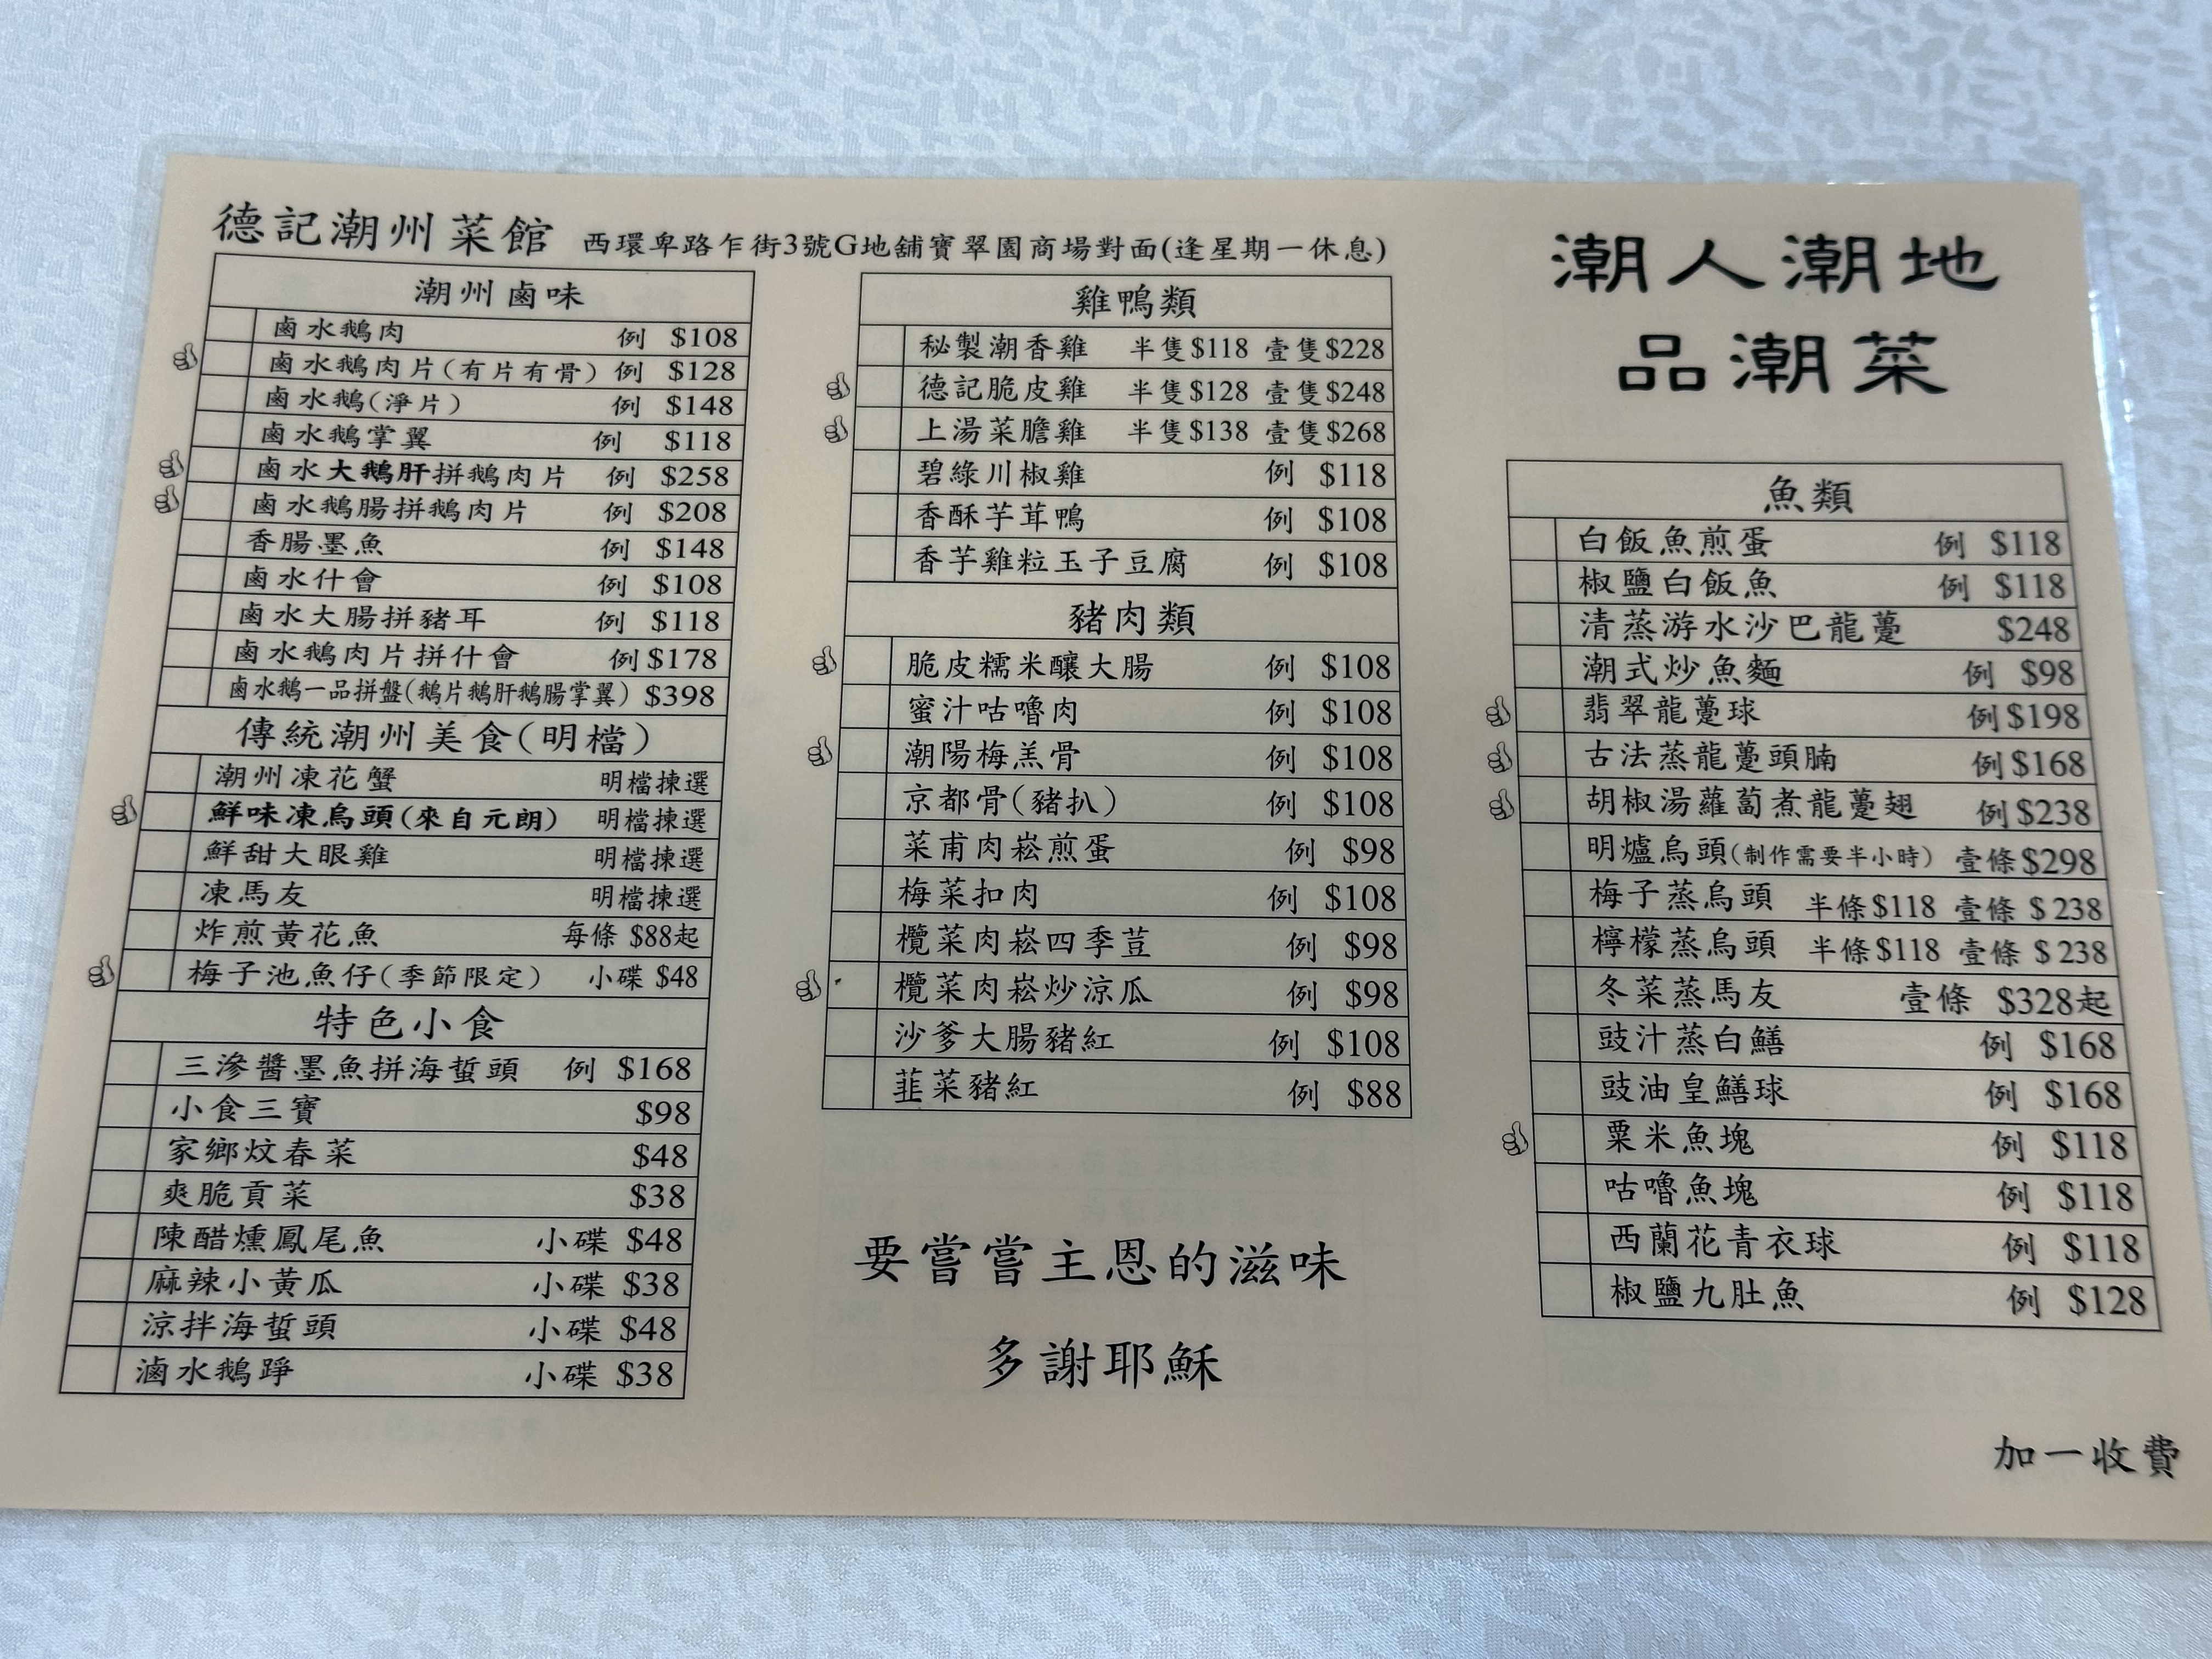 德記潮州菜館 西環卑路乍街3號G地舖寶翠園商場對面(逢星期一休息)
潮州鹵味
鹵水鵝肉 例 $108
鹵水鵝肉片(有片有骨) 例 $128
鹵水鵝(淨片) 例 $148
鹵水鵝掌翼 例 $118
鹵水大鵝肝拼鵝肉片 例 $258
鹵水鵝腸拼鵝肉片 例 $208
香腸墨魚 例 $148
鹵水什會 例 $108
鹵水大腸拼豬耳 例 $118
鹵水鵝肉片拼什會 例 $178
鹵水鵝一品拼盤(鵝片鵝肝鵝腸掌翼) $398
傳統潮州美食(明檔)
潮州凍花蟹 明檔揀選
鮮味凍烏頭(來自元朗) 明檔揀選
鮮甜大眼雞 明檔揀選
凍馬友 明檔揀選
炸煎黃花魚 每條 $88起
梅子池魚仔(季節限定) 小碟 $48
特色小食
三滲醬墨魚拼海蜇頭 例 $168
小食三寶 $98
家鄉炆春菜 $48
爽脆貢菜 $38
陳醋燻鳳尾魚 小碟 $48
麻辣小黃瓜 小碟 $38
涼拌海蜇頭 小碟 $48
滷水鵝踭 小碟 $38
雞鴨類
秘製潮香雞 半隻$118 壹隻$228
德記脆皮雞 半隻$128 壹隻$248
上湯菜膽雞 半隻$138 壹隻$268
碧綠川椒雞 例 $118
香酥芋茸鴨 例 $108
香芋雞粒玉子豆腐 例 $108
豬肉類
脆皮糯米釀大腸 例 $108
蜜汁咕嚕肉 例 $108
潮陽梅羔骨 例 $108
京都骨(豬扒) 例 $108
菜甫肉崧煎蛋 例 $98
梅菜扣肉 例 $108
欖菜肉崧四季荳 例 $98
欖菜肉崧炒涼瓜 例 $98
沙爹大腸豬紅 例 $108
韮菜豬紅 例 $88
要嘗嘗主恩的滋味
多謝耶穌
潮人潮地
品潮菜
魚類
白飯魚煎蛋 例 $118
椒鹽白飯魚 例 $118
清蒸游水沙巴龍躉 $248
潮式炒魚麵 例 $98
翡翠龍躉球 例 $198
古法蒸龍躉頭腩 例 $168
胡椒湯蘿蔔煮龍躉翅 例 $238
明爐烏頭(制作需要半小時) 壹條$298
梅子蒸烏頭 半條$118 壹條 $238
檸檬蒸烏頭 半條$118 壹條 $238
冬菜蒸馬友 壹條 $328起
豉汁蒸白鱔 例 $168
豉油皇鱔球 例 $168
粟米魚塊 例 $118
咕嚕魚塊 例 $118
西蘭花青衣球 例 $118
椒鹽九肚魚 例 $128
加一收費